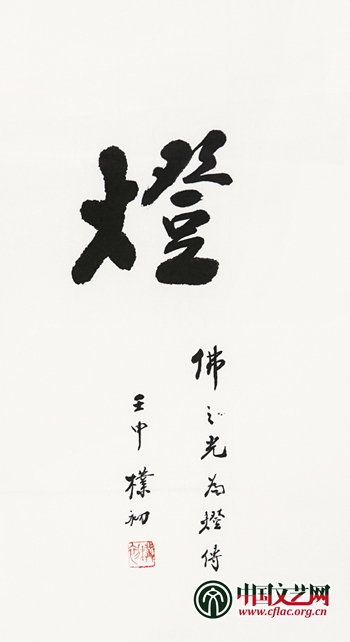 燈
佛以光為燈傳
壬申 樸初
中国文艺网
www.cflac.org.cn